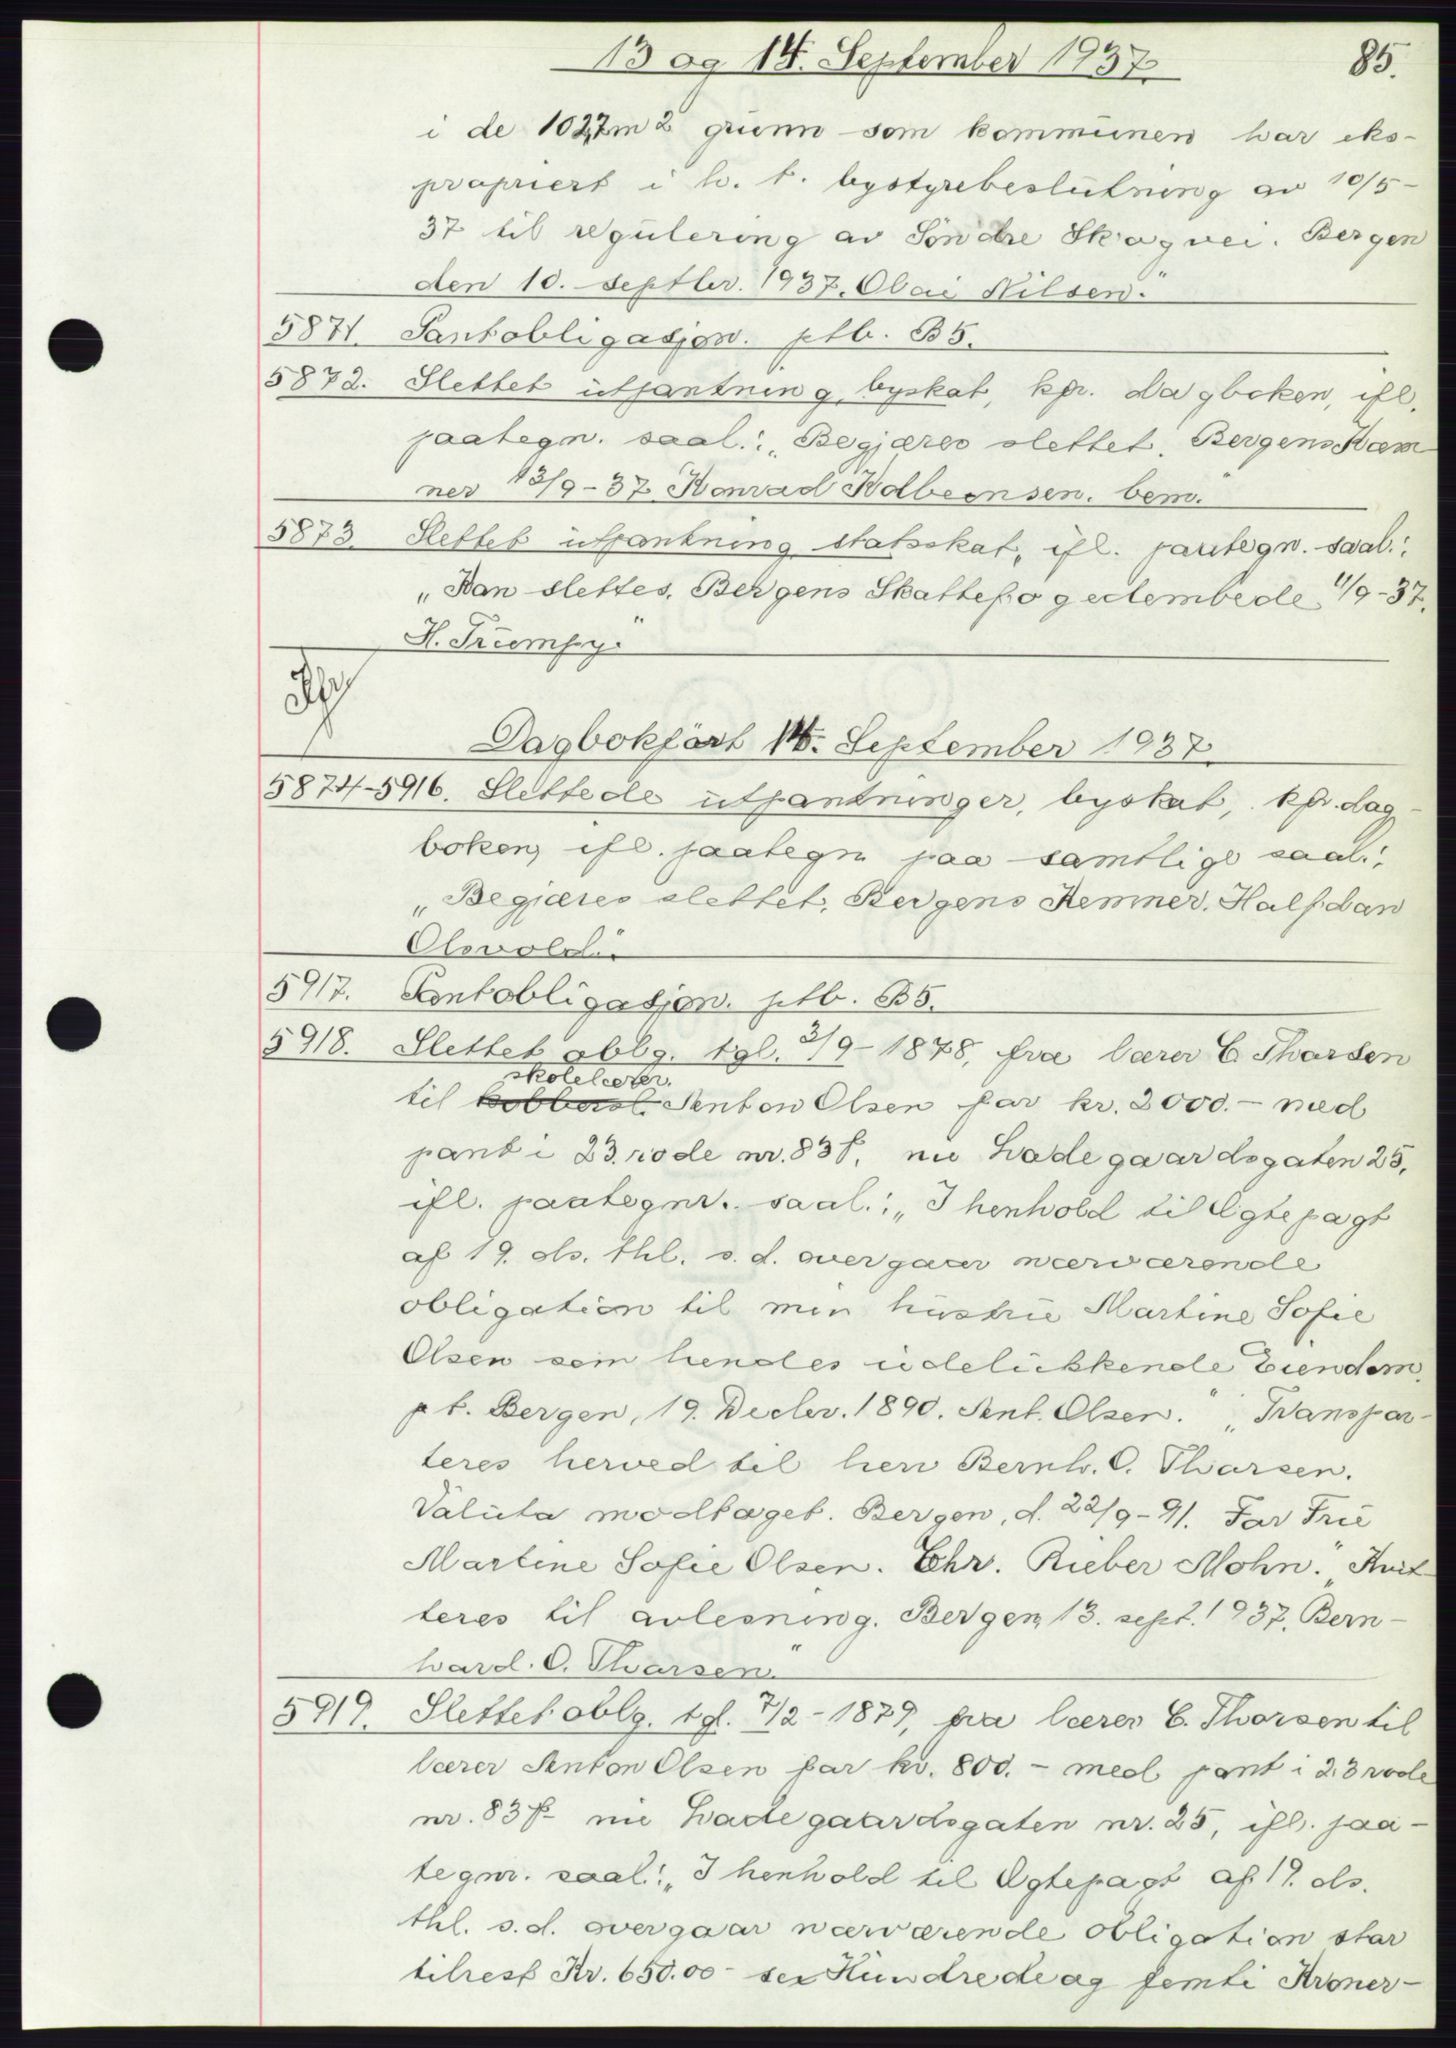 13 og 14. September 1937.
85.
i de 102,7 m2 grunn som kommunen har eks-
propriert i h. t. bystyrebeslutning av 10/5-
37 til regulering av Söndre Skogvei. Bergen
den 10. septbr. 1937. Olai Nilsen."
5871. Pantobligasjon. ptb. B5.
5872. Slettet utpantning, byskat, kfr. dagboken, ifl.
paategn. saal.: „Begjæres slettet. Bergens Kæm-
ner 13/9-37 Konrad Kolbeensen. bem."
5873. Slettet utpantning statsskat, ifl. paategn. saal.:
„Kan slettes, Bergens Skattefogedembede, 11/9-37.
H. Trumpy."
Dagbokfört 14. September 1937.
5874-5916. Slettede utpantninger, byskat, kfr. dag-
boken, ifl. paategn paa samtlige saal.:
„Begjæres slettet, Bergens Kemner. Halfdan
Olsvold."
5917. Pantobligasjon. ptb. B5.
5918. Slettet oblg. tgl. 3/9-1878, fra lærer C. Thorsen
skolelærer.
til kobbersl. Anton Olsen for kr. 2000.- med
pant i 23. rode nr. 83 f. nu Ladegaardsgaten 25,
ifl. paategnr. saal.: „I henhold til Egtepagt
af 19. ds. thl. s. d. overgaar nærværende
obligation til min hustru Martine Sofie
Olsen som hendes udelukkende Eiendom.
p t. Bergen, 19. Decbr. 1890. Ant. Olsen." „Transpor-
teres herved til herr Bernh. C. Thorsen.
Valuta modtaget. Bergen, d. 22/9-91. For Fru
Martine Sofie Olsen. Chr. Rieber Mohn." „Kvit-
teres til avlesning. Bergen, 13. sept. 1937. Bern-
hard. C. Thorsen."
5919. Slettet oblg. tgl. 7/2-1879, fra lærer C. Thorsen til
lærer Anton Olsen for kr. 800.- med pant i 23 rode
nr. 83 f- nu Ladegaardsgaten nr. 25, ifl. paa-
tegnr. saal.: „I henhold til Egtepagt af 19. ds.
thl. s. d. overgaar nærværende obligation stor
tilrest Kr. 650.00 - sex Hundrede og femti Kroner-